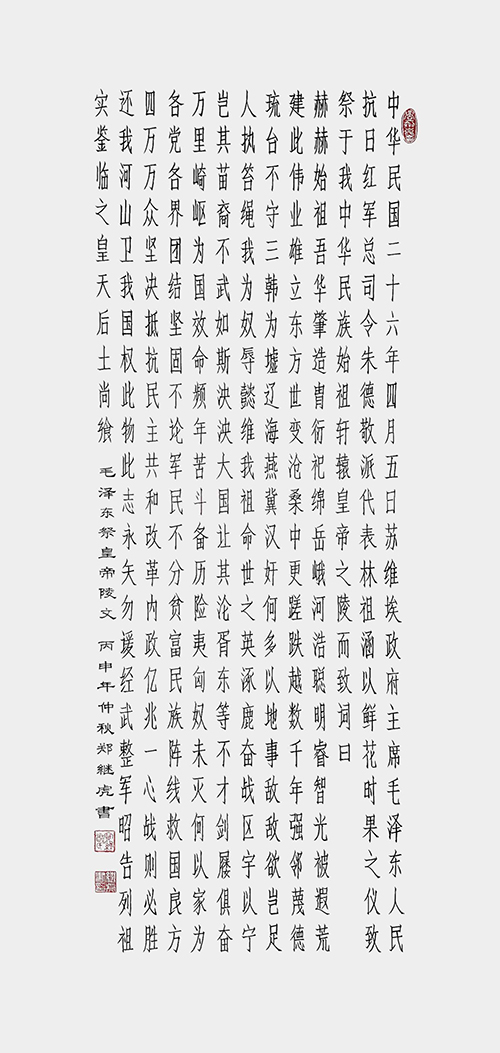 中华民国二十六年四月五日苏维埃政府主席毛泽东人民
抗日红军总司令朱德敬派代表林祖涵以鲜花时果之仪致
祭于我中华民族始祖轩辕皇帝之陵而致词曰
赫赫始祖吾华肇造胄衍祀绵岳峨河浩聪明睿智光被遐荒
建此伟业雄立东方世变沧桑中更蹉跌越数千年强邻蔑德
琉台不守三韩为墟辽海燕冀汉奸何多以地事敌敌欲岂足
人执笞绳我为奴辱懿维我祖命世之英涿鹿奋战区宇以宁
岂其苗裔不武如斯泱泱大国让其沦胥东等不才剑屦俱奋
万里崎岖为国效命频年苦斗备历险夷匈奴未灭何以家为
各党各界团结坚固不论军民不分贫富民族阵线救国良方
四万万众坚决抵抗民主共和改革内政亿兆一心战则必胜
还我河山卫我国权此物此志永矢勿谖经武整军昭告列祖
实鉴临之皇天后土尚飨
毛泽东祭皇帝陵文 丙申年仲秋郑继虎書